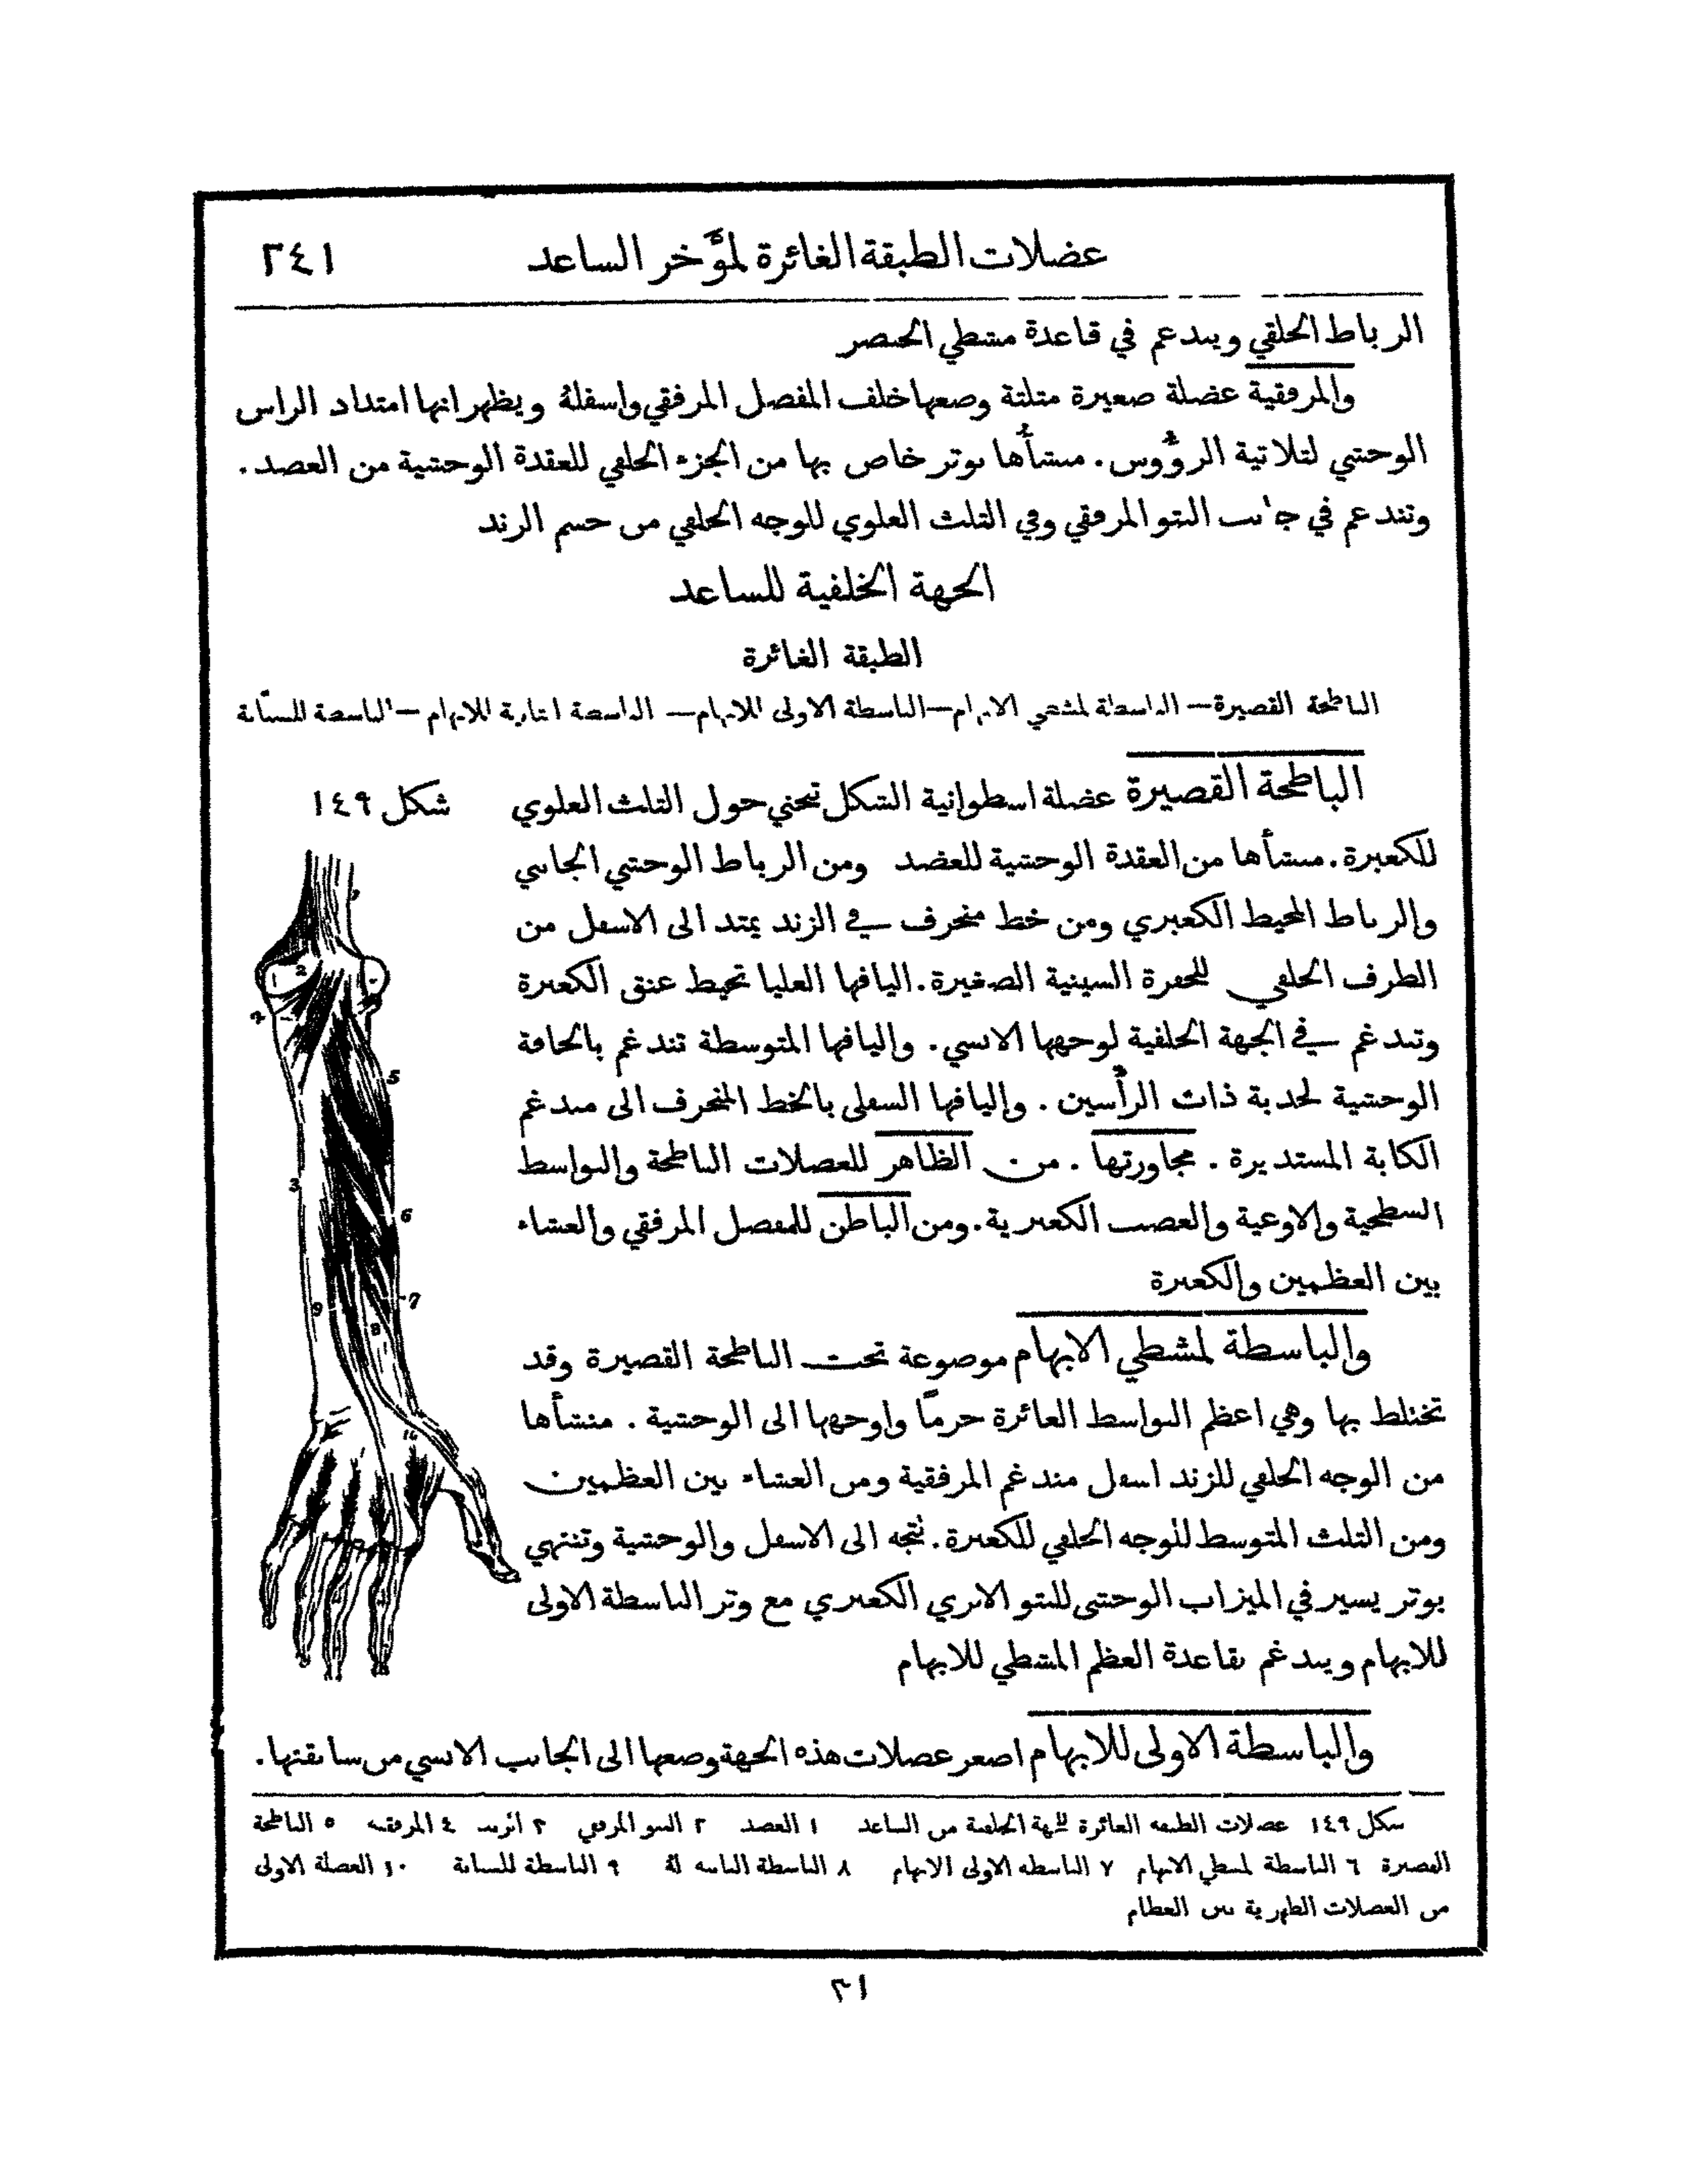 عضلات الطبقة الغائرة لمؤَخر الساعد ٢٤١
الرباط الحلقي ويندغم في قاعدة مشطي الخنصر
والمرفقية عضلة صغيرة مثلثة وضعها خلف المفصل المرفقي واسفلهُ ويظهر انها امتداد الراس
الوحشي لثلاثية الرؤُوس. منشأُها بوتر خاص بها من الجزء الخلفي للعقدة الوحشية من العضد.
وتندغم في جانب النتو المرفقي وفي الثلث العلوي للوجه الخلفي من جسم الزند
الجهة الخلفية للساعد
الطبقة الغائرة
الباطحة القصيرة — الباسطة لمشطي الابهام — الباسطة الاولى للابهام — الباسطة الثانية للابهام — الباسطة للسبَّابة
الباطحة القصيرة عضلة اسطوانية الشكل تنحني حول الثلث العلوي
شكل ١٤٩
للكعبرة. منشأها من العقدة الوحشية للعضد ومن الرباط الوحشي الجانبي
والرباط المحيط الكعبري ومن خط منحرف في الزند يمتد الى الاسفل من
الطرف الخلفي للحفرة السينية الصغيرة. اليافها العليا تحيط عنق الكعبرة
وتندغم في الجهة الخلفية لوجهها الانسي. واليافها المتوسطة تندغم بالحافة
الوحشية لحدبة ذات الرأسين. واليافها السفلى بالخط المنحرف الى مندغم
الكابة المستديرة. مجاورتها. من الظاهر للعضلات الباطحة والبواسط
السطحية والاوعية والعصب الكعبرية. ومن الباطن للمفصل المرفقي والغشاء
بين العظمين والكعبرة
والباسطة لمشطي الابهام موضوعة تحت الباطحة القصيرة وقد
تختلط بها وهي اعظم البواسط الغائرة جرمًا واوجهها الى الوحشية. منشأها
من الوجه الخلفي للزند اسفل مندغم المرفقية ومن الغشاء بين العظمين
ومن الثلث المتوسط للوجه الخلفي للكعبرة. تتجه الى الاسفل والوحشية وتنتهي
بوتر يسير في الميزاب الوحشي للنتو الابري الكعبري مع وتر الباسطة الاولى
للابهام ويندغم بقاعدة العظم المشطي للابهام
والباسطة الاولى للابهام اصغر عضلات هذه الجهة وضعها الى الجانب الانسي من سابقتها.
شكل ١٤٩ عضلات الطبقة الغائرة للجهة الخلفية من الساعد ١ العضد ٢ النتو المرفقي ٣ الزند ٤ المرفقية ٥ الباطحة
القصيرة ٦ الباسطة لمشطي الابهام ٧ الباسطة الاولى الابهام ٨ الباسطة الثانية لهُ ٩ الباسطة للسبابة ١٠ العضلة الاولى
من العضلات الظهرية بين العظام
٣١